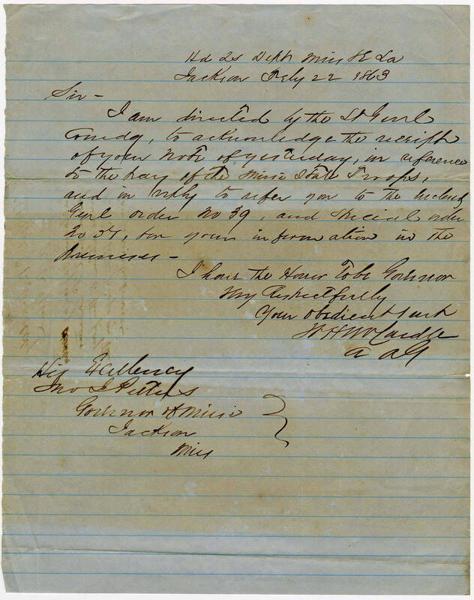 Hd Qs Dept Miss & E La
Jackson Feby 22 1863
Sir -
I am directed by the Lt Genl
Comdg, to acknowledge the receipt
of your note of yesterday, in reference
to the pay of the Miss State Troops,
and in reply to refer you to the inclosed
Genl order No 39, and Special order
No 37, for your information in the
business -
I have the Honor to be Governor
Very Respectfully
Your obedient Servt
W H McCardle
A A G
His Excellency
Jno J Pettus
Governor of Miss
Jackson
Miss